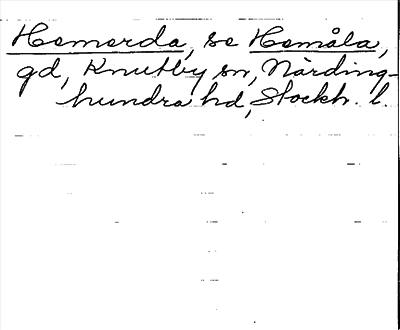 Hemerda, se Hemåla,
gd, Knutby sn, Närding-
hundra hd, Stockh. l.